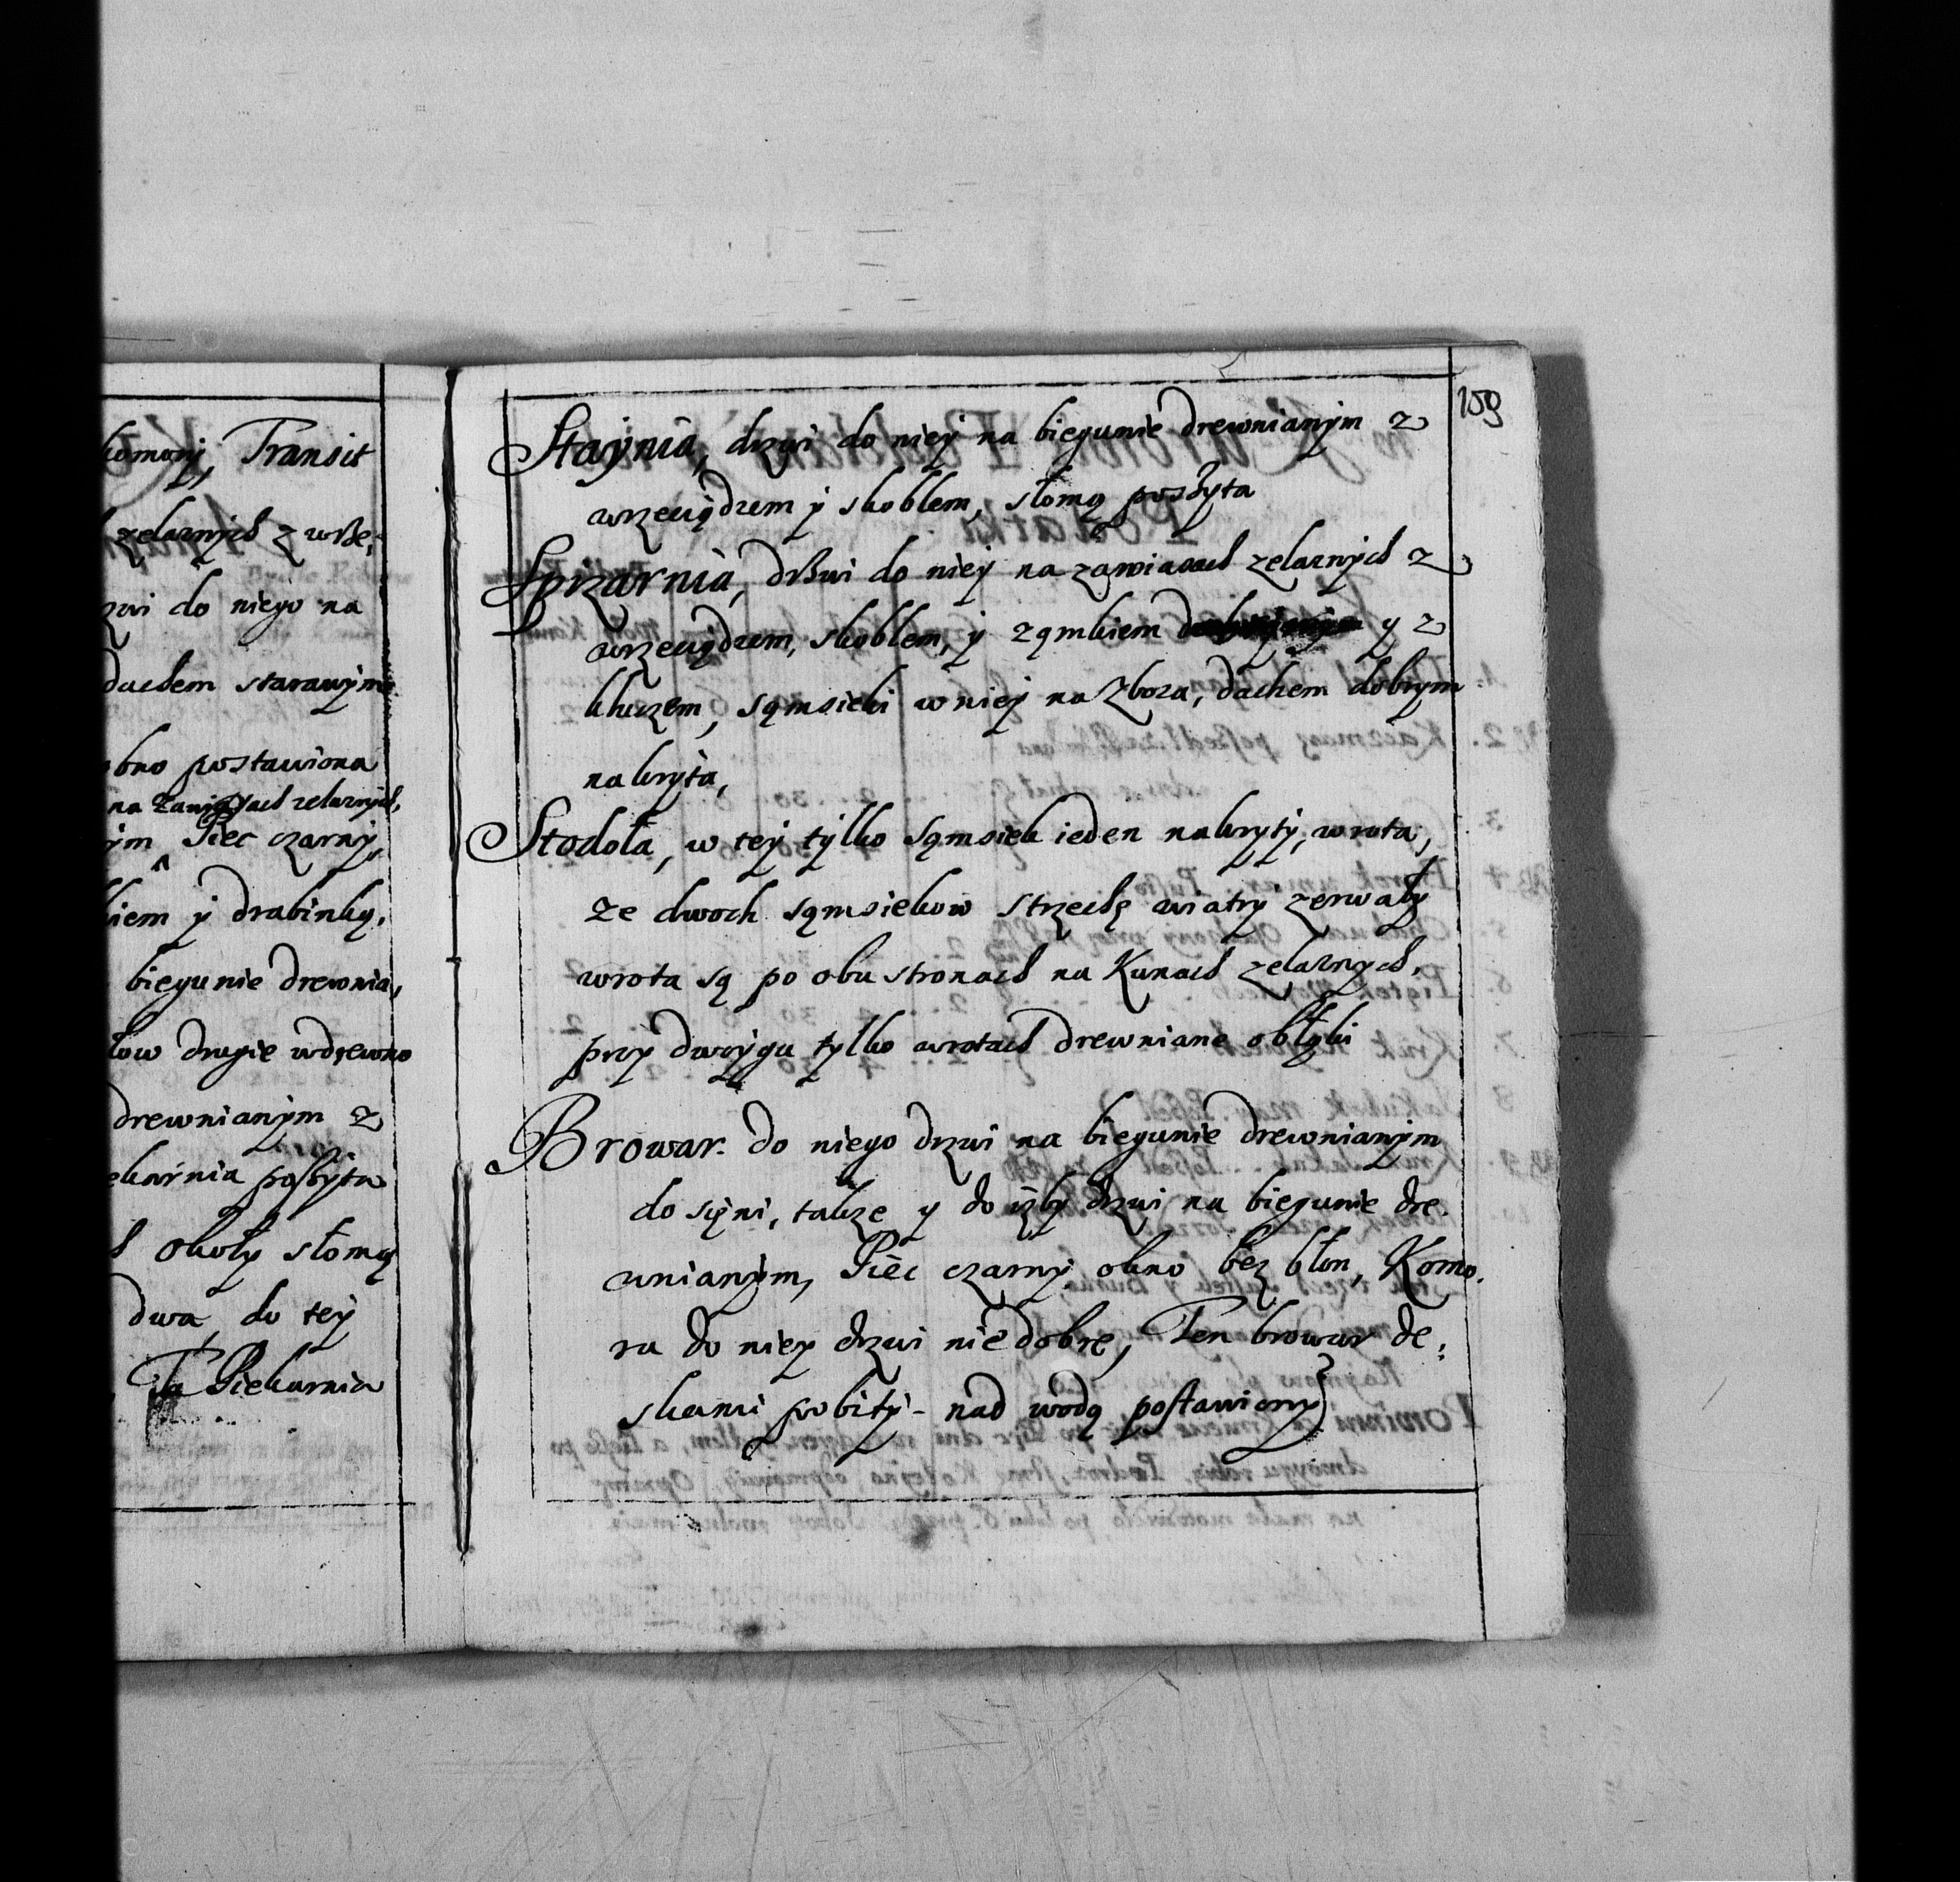 komory, Transit
zelaznych z wrze-
zwi do niego na
dachem starawym
okno postawiona
na zawiasach zelaznych,
ym Piec czarny,
kiem y drabinką,
biegunie drewnia,
łow drugie wdrewno
drewnianym z
ekarnia poszyta
okoły słomą
dwa, do tey
Ta Piekarnia
159
Staynia, drzwi do niey na biegunie drewnianym z
wrzeciądzem y skoblem, słomą poszyta
Spizarnia, drzwi do niey na zawiasach zelaznych z
wrzeciądzem, skoblem, y ząmkiem y z
kluczem, sąmsieki w niey na Zboza, dachem dobrym
nakryta,
Stodoła, w tey tylko Sąmsiek ieden nakryty, wrota,
ze dwoch sąmsiekow strzechę wiatry zerwały
wrota są po obu stronach na Kunach zelaznych,
przy dwoygu tylko wrotach drewniane obłąki
Browar. do niego drzwi na biegunie drewnianym
do sięni, takze y do izby drzwi na biegunie dre-
wnianym, Piec czarny okno bez błon, Komo-
ra do niey drzwi niedobre, Ten browar de:
skami pobity - nad wodą postawiony